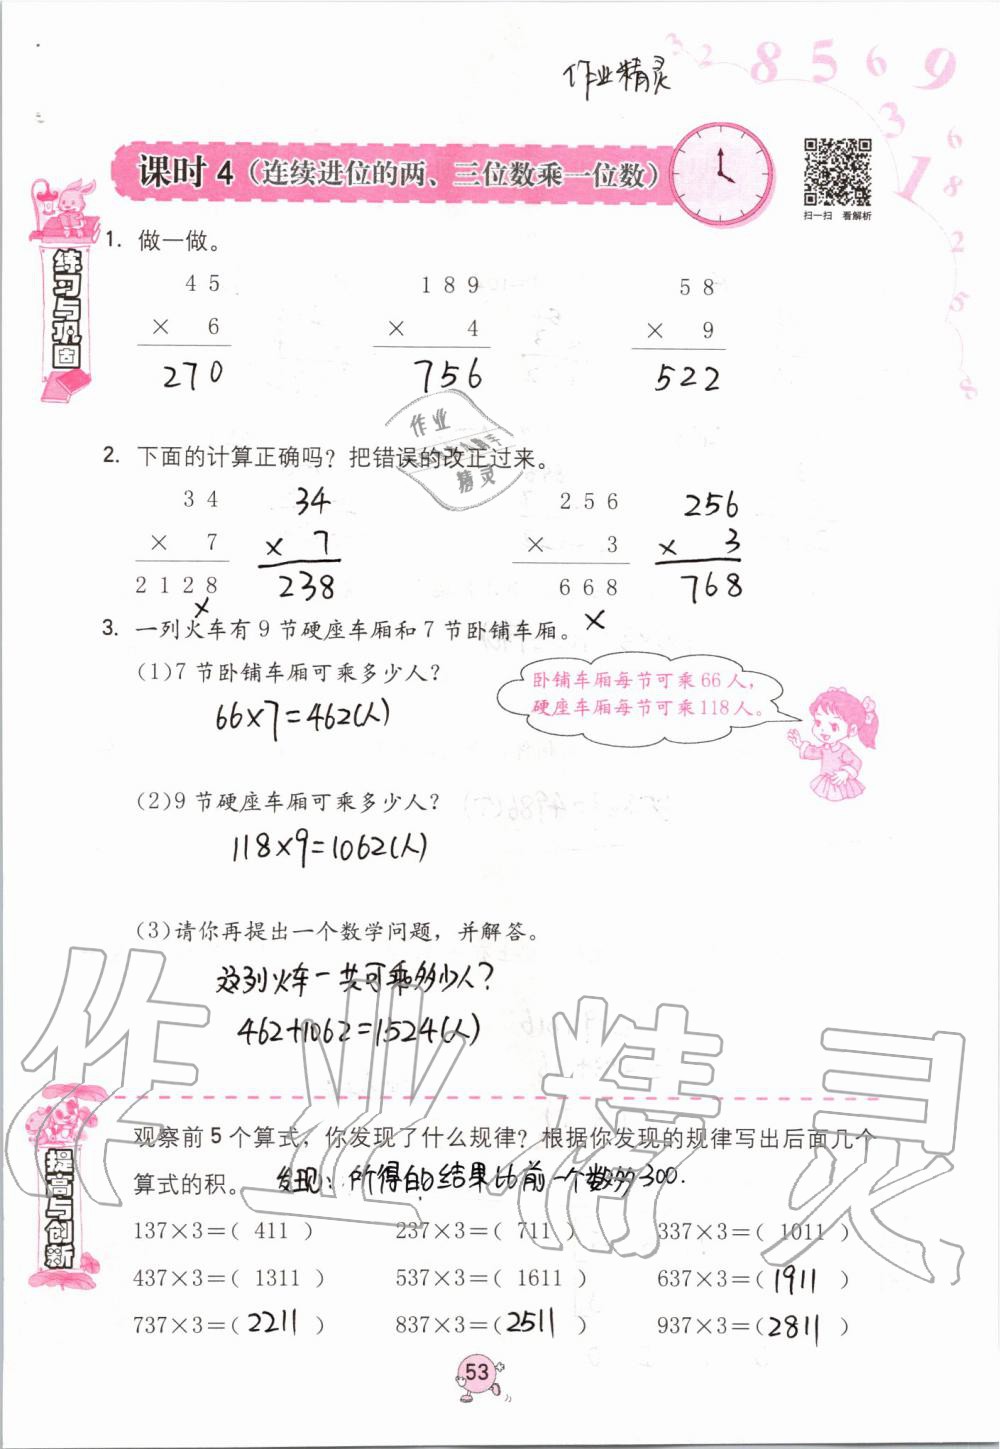 3 2 8 5 6 9
作业精灵
3 1 6 8 2 5 8
课时 4（连续进位的两、三位数乘一位数）
扫一扫 看解析
练习与巩固
1. 做一做。
4 5 1 8 9 5 8
× 6 × 4 × 9
270 756 522
作业
精灵
2. 下面的计算正确吗？把错误的改正过来。
3 4 34 2 5 6 256
× 7 × 7 × 3 × 3
2 1 2 8 238 6 6 8 768
× ×
3. 一列火车有 9 节硬座车厢和 7 节卧铺车厢。
(1)7 节卧铺车厢可乘多少人？
卧铺车厢每节可乘 66 人，
硬座车厢每节可乘 118 人。
66×7=462(人)
(2)9 节硬座车厢可乘多少人？
118×9=1062(人)
(3)请你再提出一个数学问题，并解答。
这列火车一共可乘多少人？
462+1062=1524(人)
作业精灵
提高与创新
观察前 5 个算式，你发现了什么规律？根据你发现的规律写出后面几个
算式的积。 发现：所得的结果比前一个数多300.
137×3=( 411 ) 237×3=( 711 ) 337×3=( 1011 )
437×3=( 1311 ) 537×3=( 1611 ) 637×3=( 1911 )
737×3=( 2211 ) 837×3=( 2511 ) 937×3=( 2811 )
53